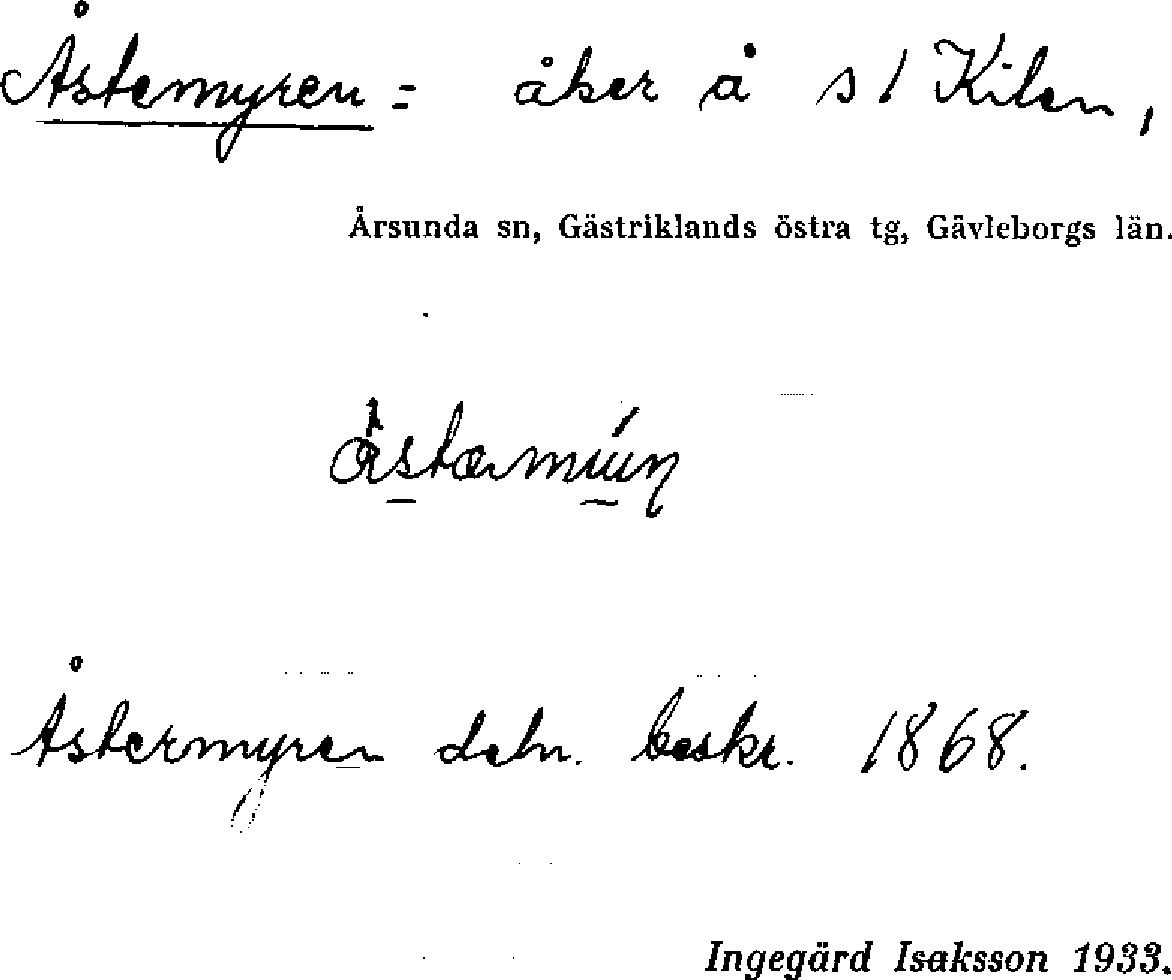 Åstemyren = åker å s/ Kilen,
Årsunda sn, Gästriklands östra tg, Gävleborgs län.
Åstermyren deln. beskr. 1868.
Ingegärd Isaksson 1933.